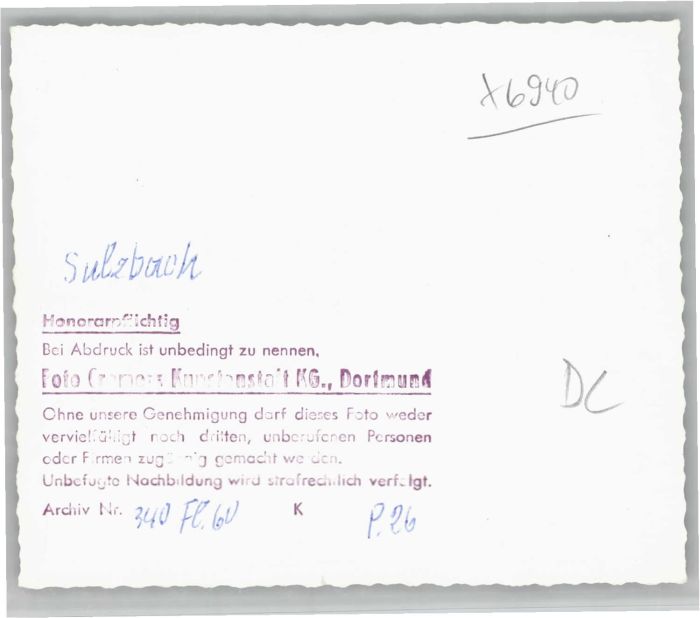 X6940
Sulzbach
Honorarpflichtig
Bei Abdruck ist unbedingt zu nennen,
Foto Cramers Kunstanstalt KG., Dortmund
DC
Ohne unsere Genehmigung darf dieses Foto weder
vervielfältigt noch dritten, unberufenen Personen
oder Firmen zugängig gemacht werden.
Unbefugte Nachbildung wird strafrechtlich verfolgt.
Archiv Nr. 340 Fl. 60 K P. 26